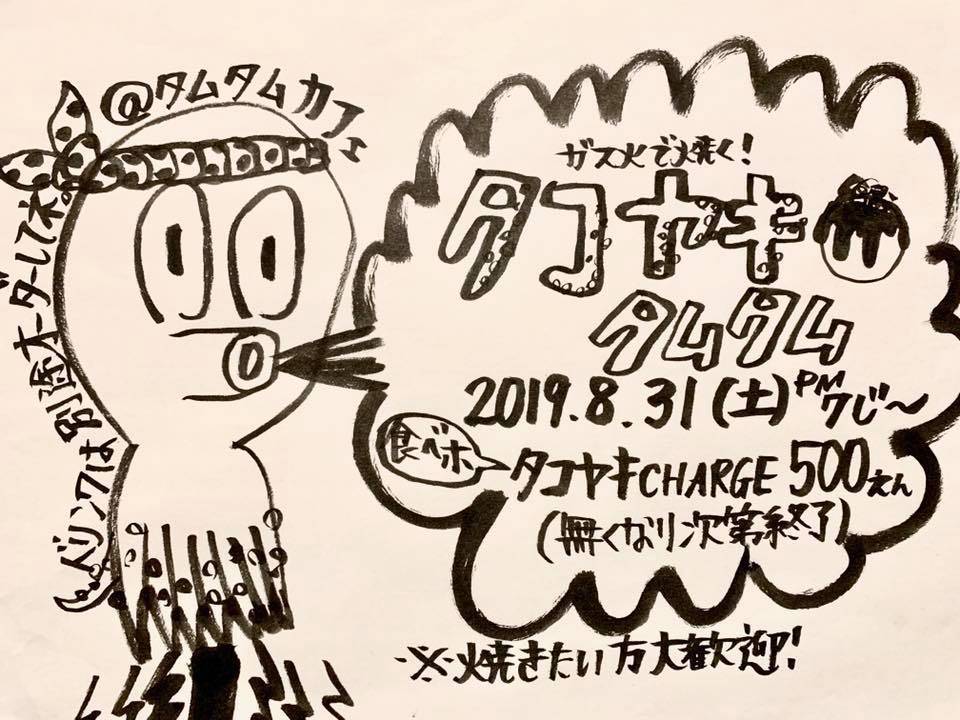 @タムタムカフェ
ガス火で焼く!
タコヤキ
タムタム
2019.8.31(土)PM7じ〜
食べホ
タコヤキCHARGE 500えん
(無くなり次第終了)
※焼きたい方大歓迎!
ドリンクは オーダーしてネ。